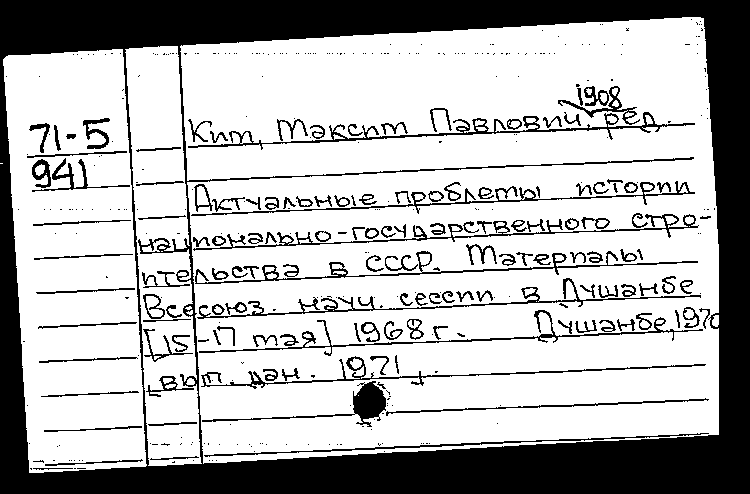 1908
71-5 Ким, Максим Павлович, ред.
941
Актуальные проблемы истории
национально-государственного стро-
ительства в СССР. Материалы
Всесоюз. науч. сессии в Душанбе
[15-17 мая] 1968 г. Душанбе, 1970
[вып. дан. 1971].